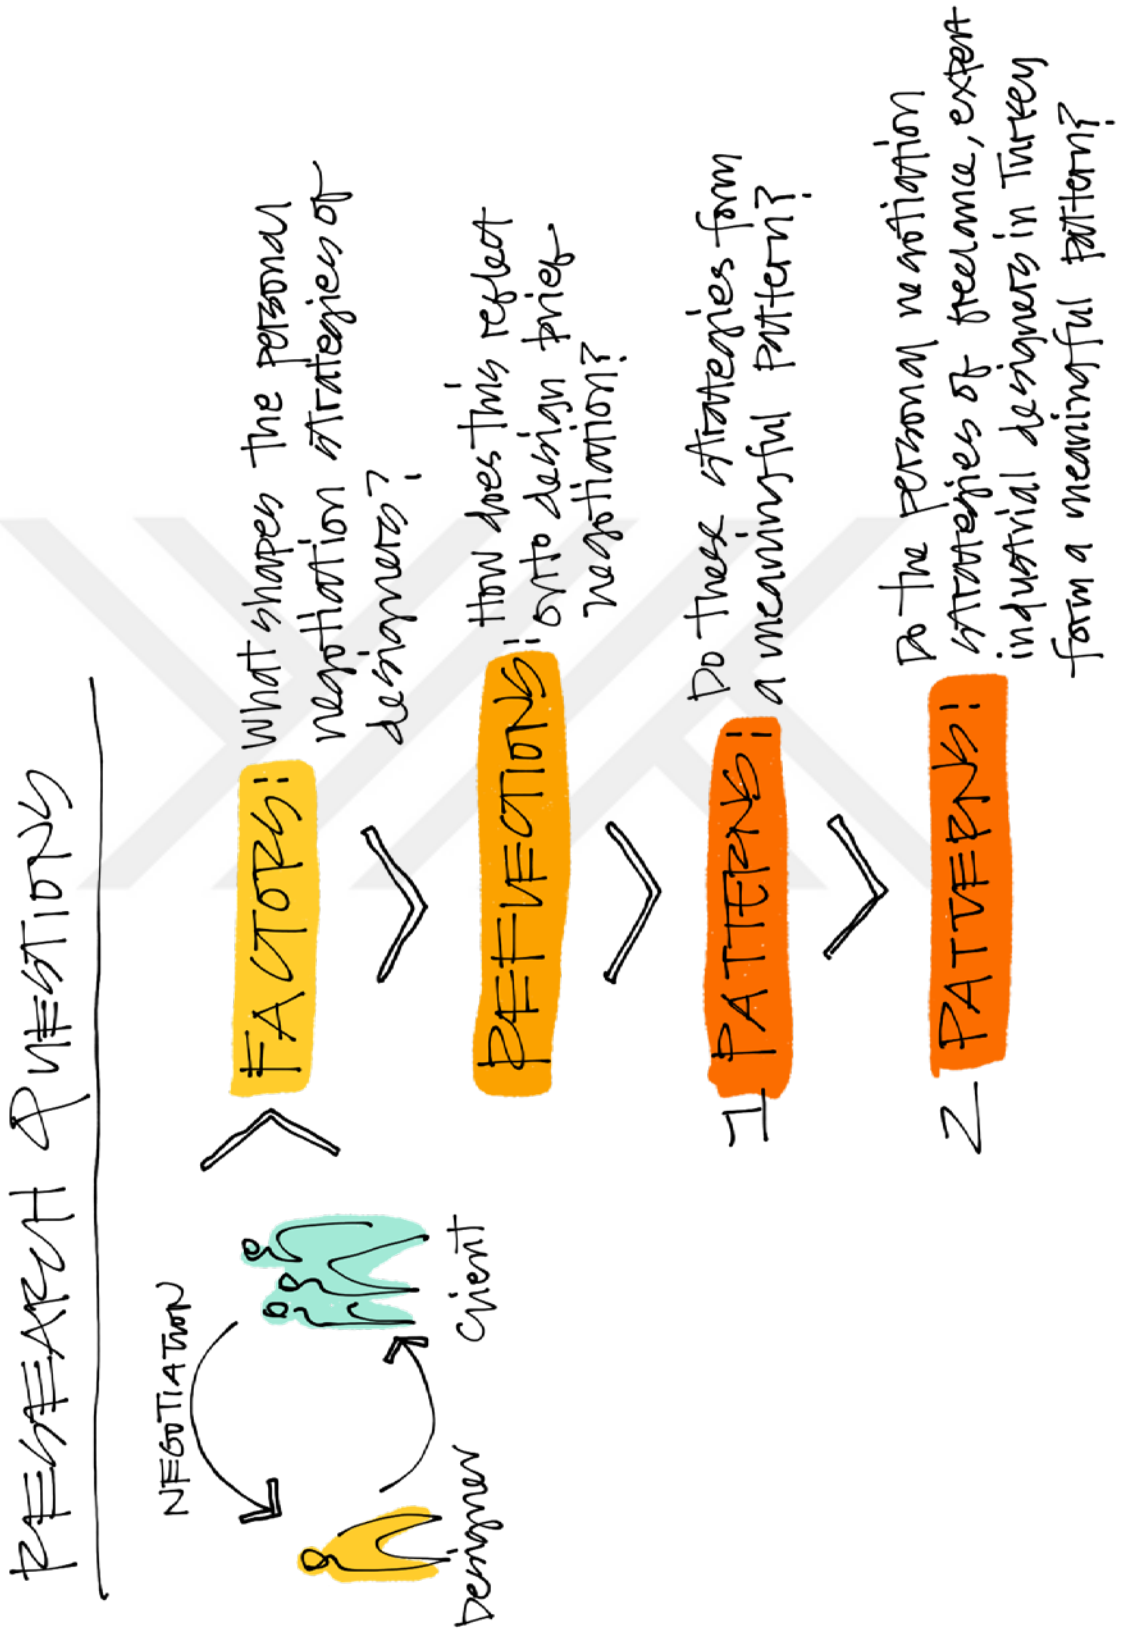 RESEARCH QUESTIONS
NEGOTIATION
Designer
Client
FACTORS: What shapes the personal
negotiation strategies of
designers?
REFLECTIONS: How does this reflect
onto design brief
negotiation?
1 PATTERNS: Do these strategies form
a meaningful pattern?
2 PATTERNS: Do the personal negotiation
strategies of freelance, expert
industrial designers in Turkey
form a meaningful pattern?